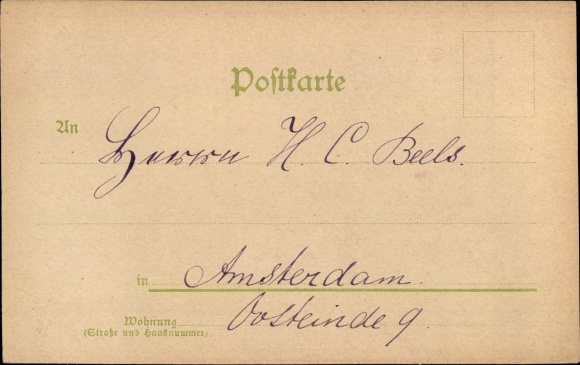 Poſtkarte
An Herrn H. C. Beels.
in Amsterdam.
Wohnung Oosteinde 9.
(Straße und Hausnummer)